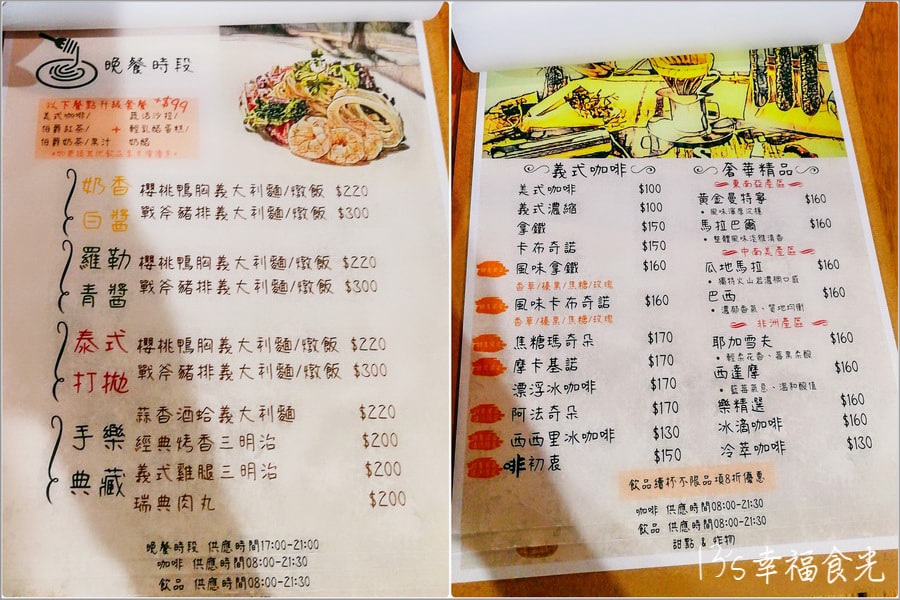 晚餐時段
以下餐點升級套餐 +$99
美式咖啡/ 蔬活沙拉/
伯爵紅茶/ + 輕乳酪蛋糕/
伯爵奶茶/果汁 奶酪
奶香白醬
櫻桃鴨胸義大利麵/燉飯 $220
戰斧豬排義大利麵/燉飯 $300
羅勒青醬
櫻桃鴨胸義大利麵/燉飯 $220
戰斧豬排義大利麵/燉飯 $300
泰式打拋
櫻桃鴨胸義大利麵/燉飯 $220
戰斧豬排義大利麵/燉飯 $300
手樂典藏
蒜香酒蛤義大利麵 $220
經典烤香三明治 $200
義式雞腿三明治 $200
瑞典肉丸 $200
晚餐時段 供應時間17:00-21:00
咖啡 供應時間08:00-21:30
飲品 供應時間08:00-21:30
義式咖啡
美式咖啡 $100
義式濃縮 $100
拿鐵 $150
卡布奇諾 $150
風味拿鐵 $160
香草/榛果/焦糖/玫瑰
風味卡布奇諾 $160
香草/榛果/焦糖/玫瑰
焦糖瑪奇朵 $170
摩卡基諾 $170
漂浮冰咖啡 $170
阿法奇朵 $170
西西里冰咖啡 $130
啡初衷 $150
奢華精品
東南亞產區
黃金曼特寧 $160
• 風味渾厚沉穩
馬拉巴爾 $160
• 整體風味淡雅清香
中南美產區
瓜地馬拉 $160
• 獨特火山岩濃稠口感
巴西 $160
• 濃郁香氣、質地均衡
非洲產區
耶加雪夫 $160
• 輕柔花香、莓果柔酸
西達摩 $160
• 藍莓氣息、溫和酸值
樂精選 $160
冰滴咖啡 $160
冷萃咖啡 $130
飲品續杯不限品項8折優惠
咖啡 供應時間08:00-21:30
飲品 供應時間08:00-21:30
甜點 & 炸物
135幸福食光